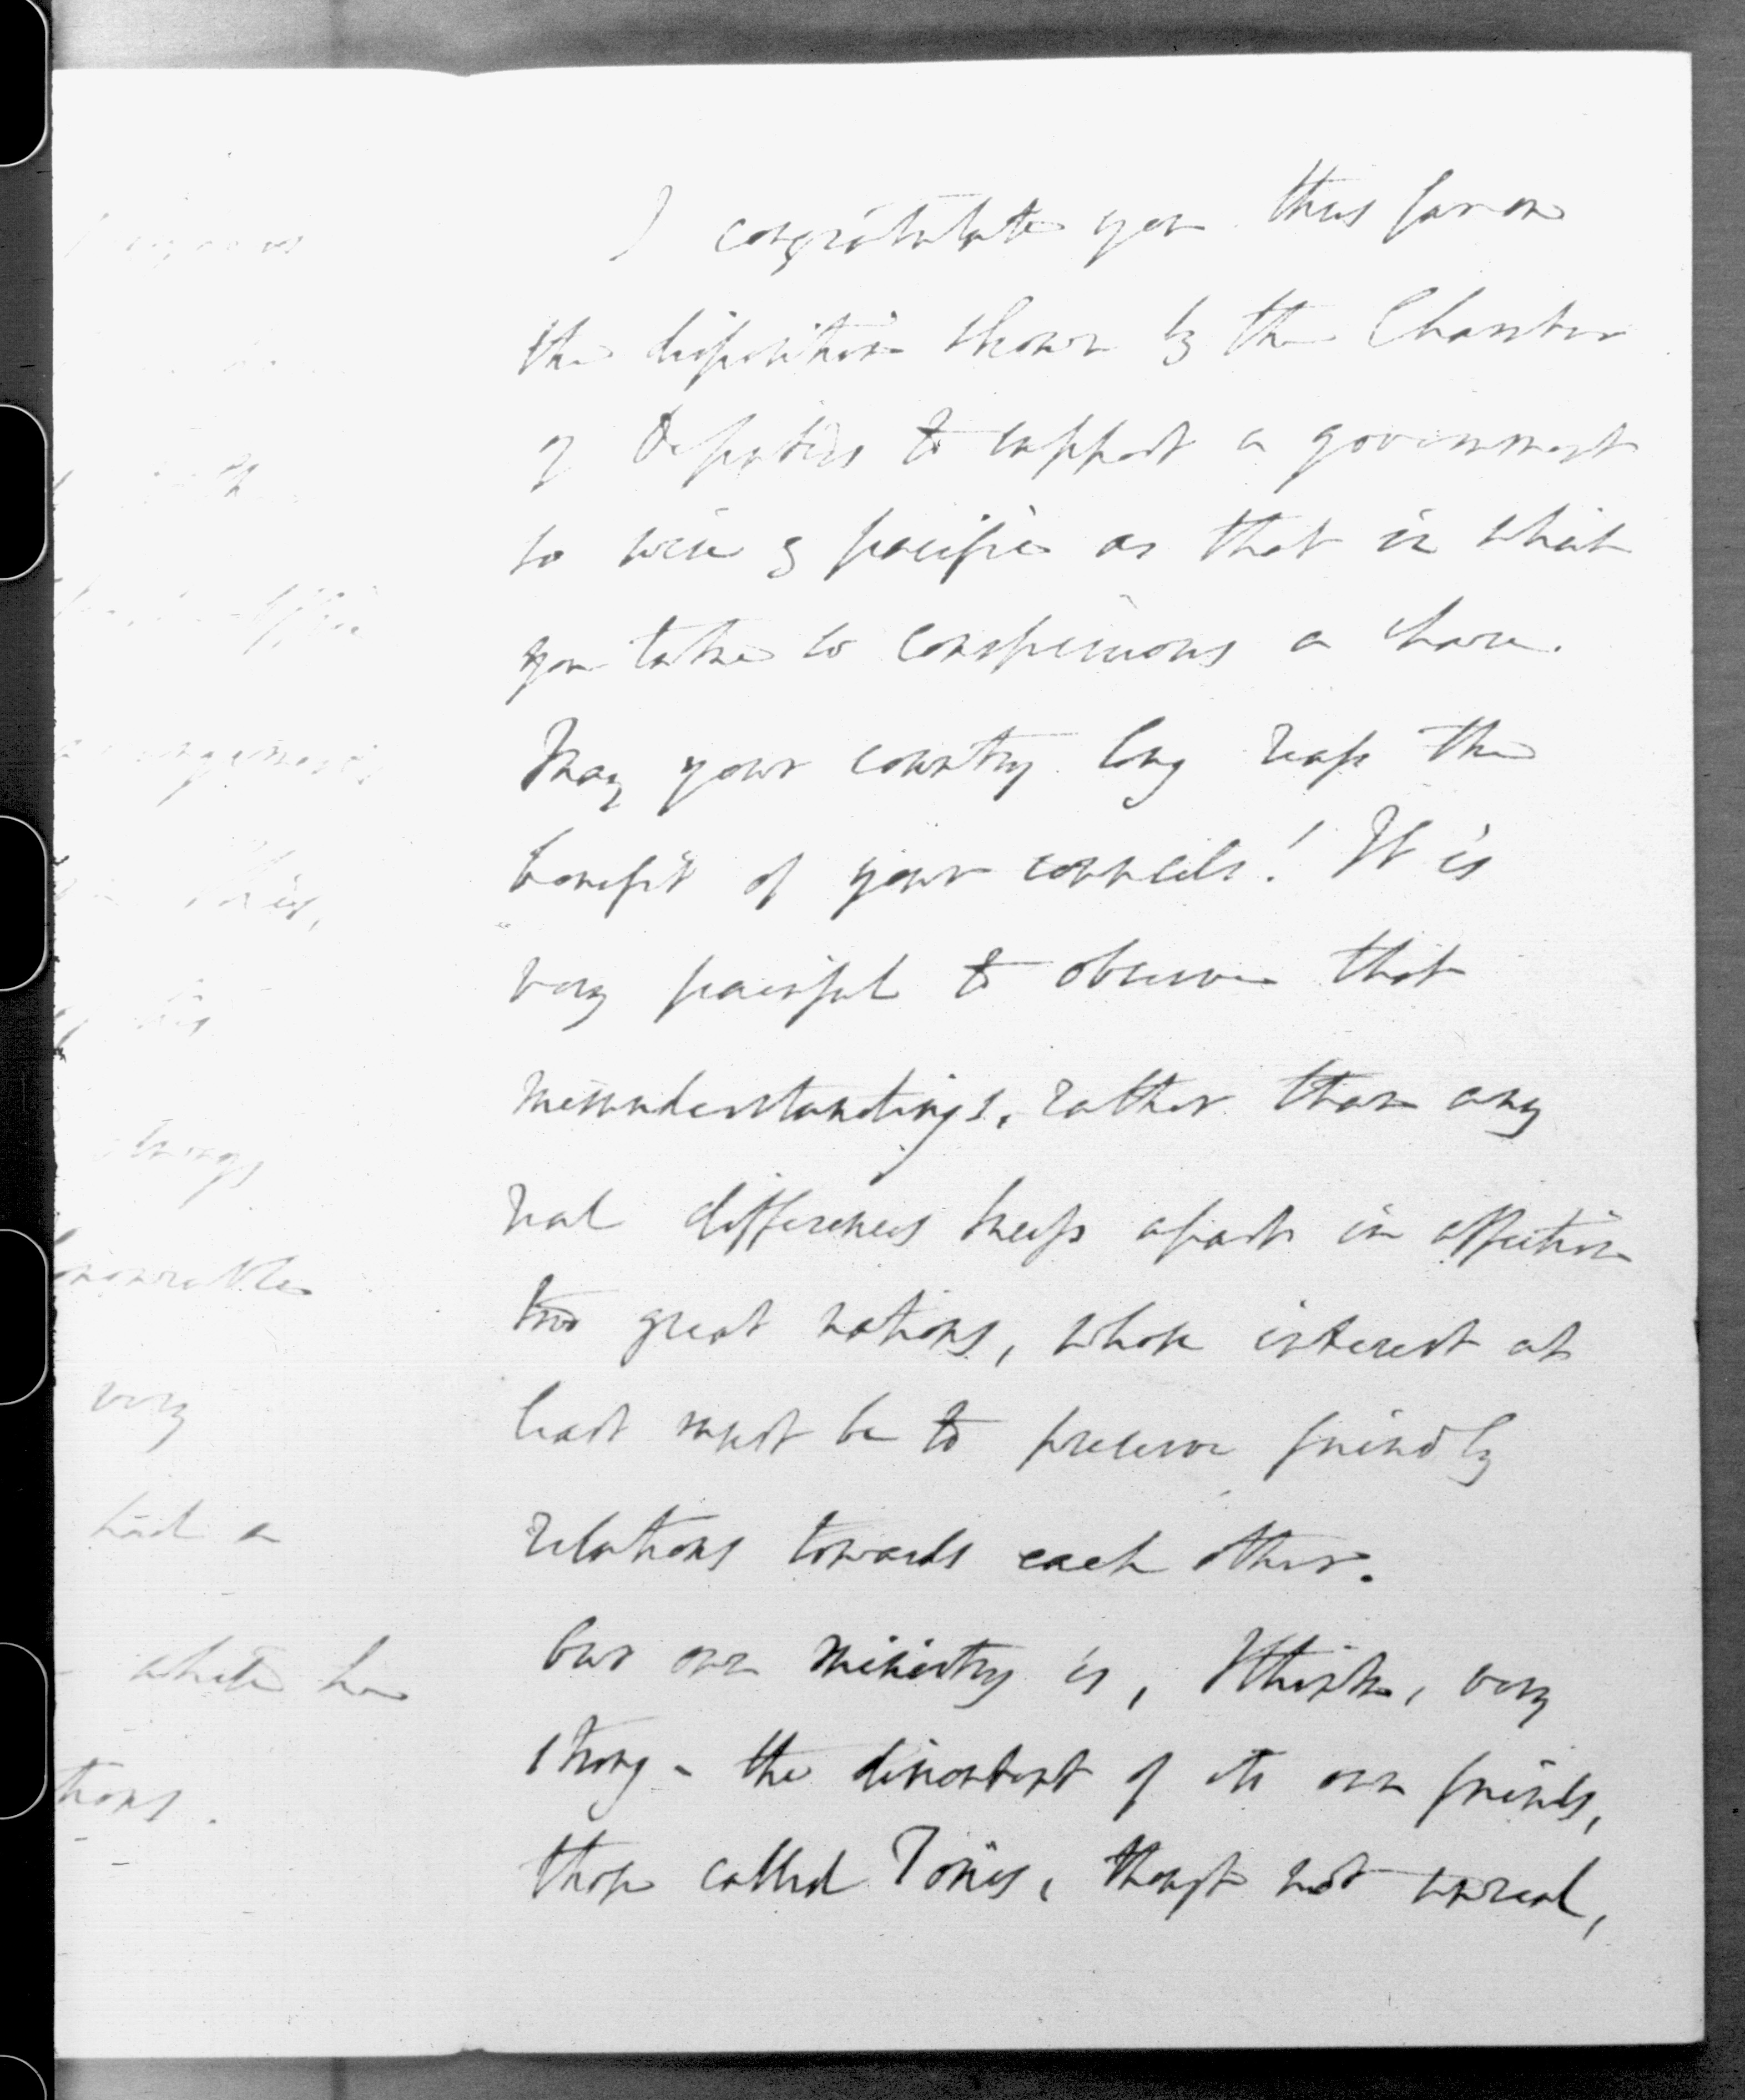 I congratulate you thus far on
the disposition shown by the Chamber
of Deputies to support a government
so wise & pacific as that in which
you take so conspicuous a share.
May your country long reap the
benefit of your councils! It is
very painful to observe that
misunderstandings, rather than any
real differences keep apart in affection
two great nations, whose interest at
least must be to preserve friendly
relations towards each other.
Our own ministry is, I think, very
strong - the discontent of its own friends,
those called Tories, though not unreal,
very
had a
which he
tions.